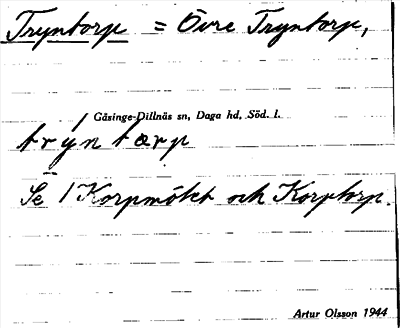 Tryntorp = Övre Tryntorp,
Gåsinge-Dillnäs sn, Daga hd, Söd. l.
trýntårp
Se 1 Korpmötet och Korptorp.
Artur Olsson 1944